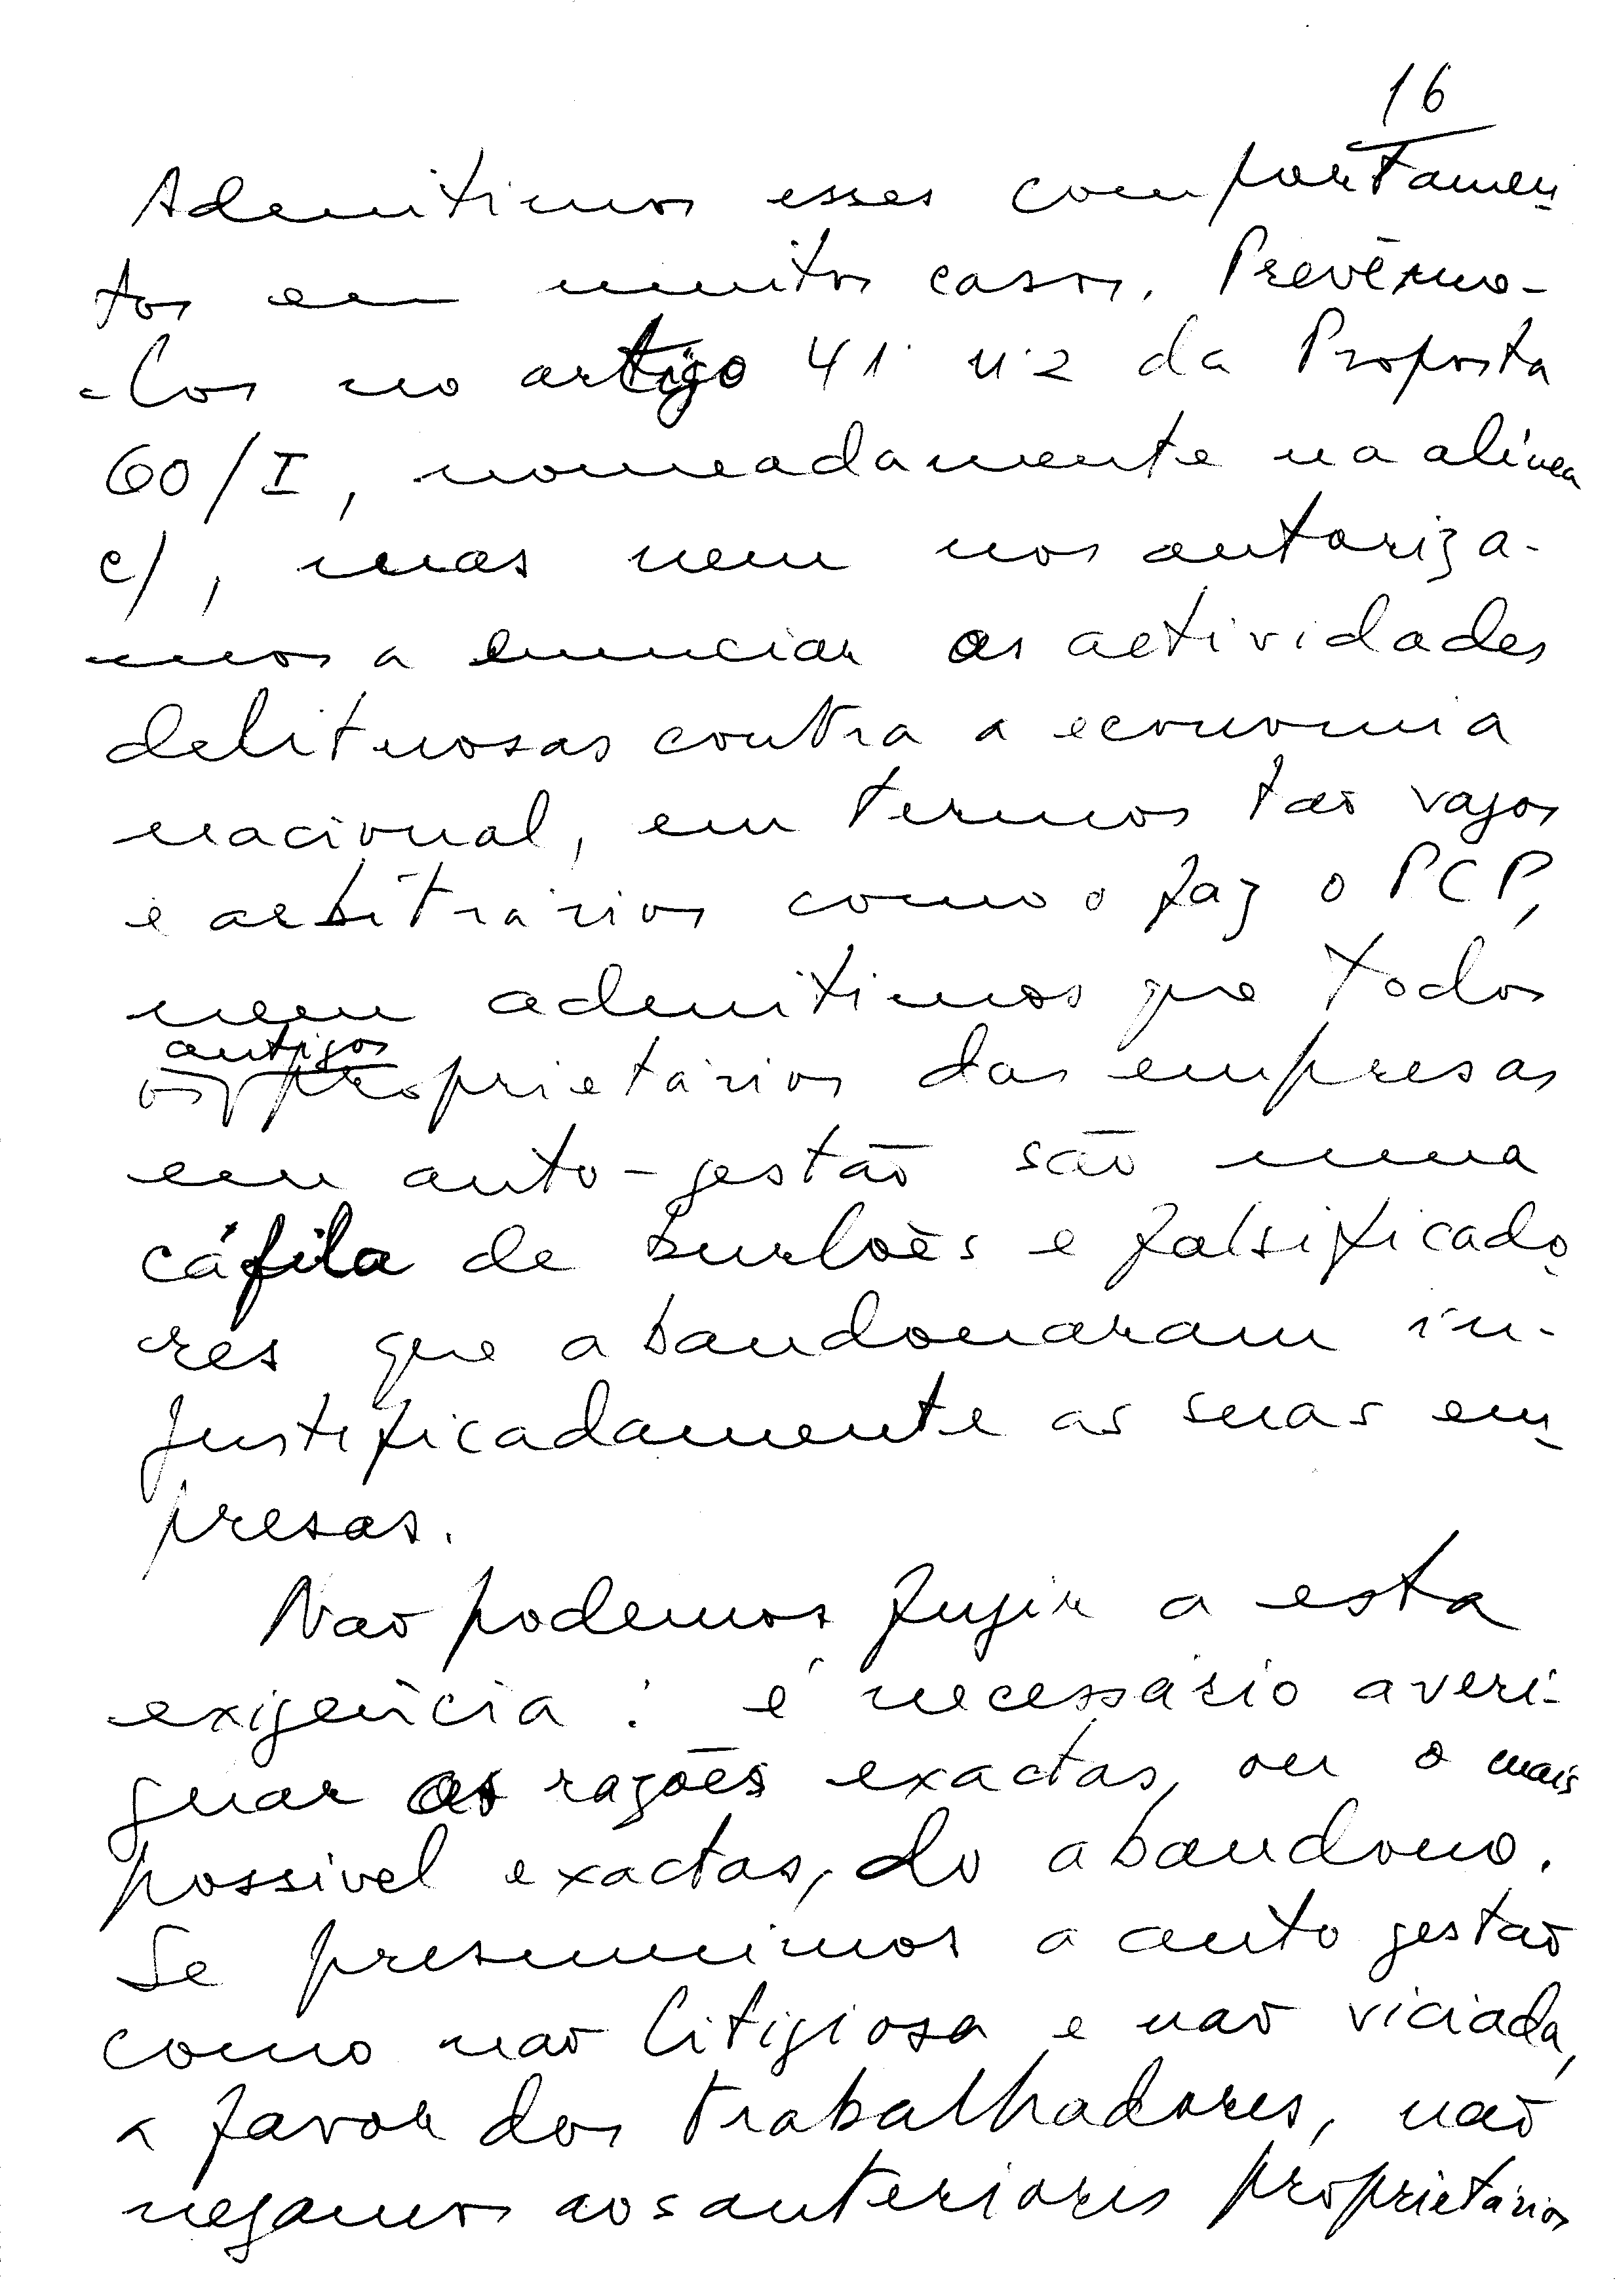 16
Admitimos esses comportamen-
tos em muitos casos. Prevêmo-
-los no artigo 41º nº 2 da Proposta
60/I, nomeadamente na alínea
c/, mas nem nos autoriza-
mos a enunciar as actividades
delituosas contra a economia
nacional, em termos tão vagos
e arbitrários como o faz o PCP,
nem admitimos que todos
os antigos proprietários das empresas
em auto-gestão são uma
cáfila de burlões e falsificado-
res que abandonaram in-
justificadamente as suas em-
presas.
Não podemos fugir a esta
exigência: é necessário averi-
guar as razões exactas, ou o mais
possível exactas, do abandono.
Se presumimos a auto gestão
como não litigiosa e não viciada,
a favor dos trabalhadores, não
negamos aos anteriores proprietários